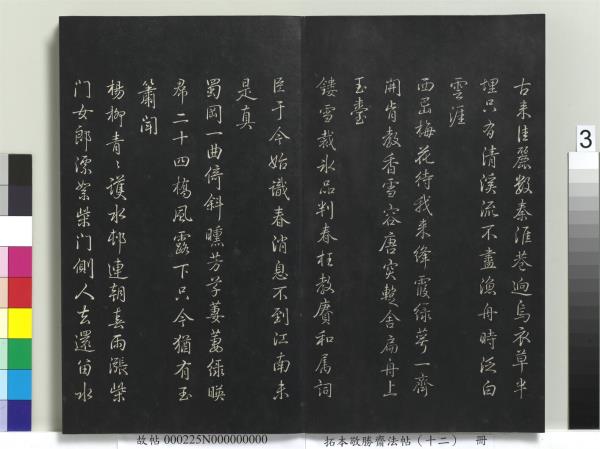 古来佳麗數秦淮巷迥烏衣草半
埋只有清溪流不盡漁舟時泛白
雲涯
西岩梅花待我来絳霞綠萼一齊
開肯教香雪容唐突暫舍扁舟上
玉臺
鏤雪裁冰品判春枉教賡和属詞
臣于今始識春消息不到江南未
是真
蜀岡一曲倚斜曛芳草萋萋綠暎
帬二十四橋風露下只今猶有玉
簫聞
楊柳青〻護水邨連朝春雨漲柴
門女郎漂絮柴門側人去還留水
3
故帖 000225N000000000
拓本敬勝齋法帖（十二） 冊